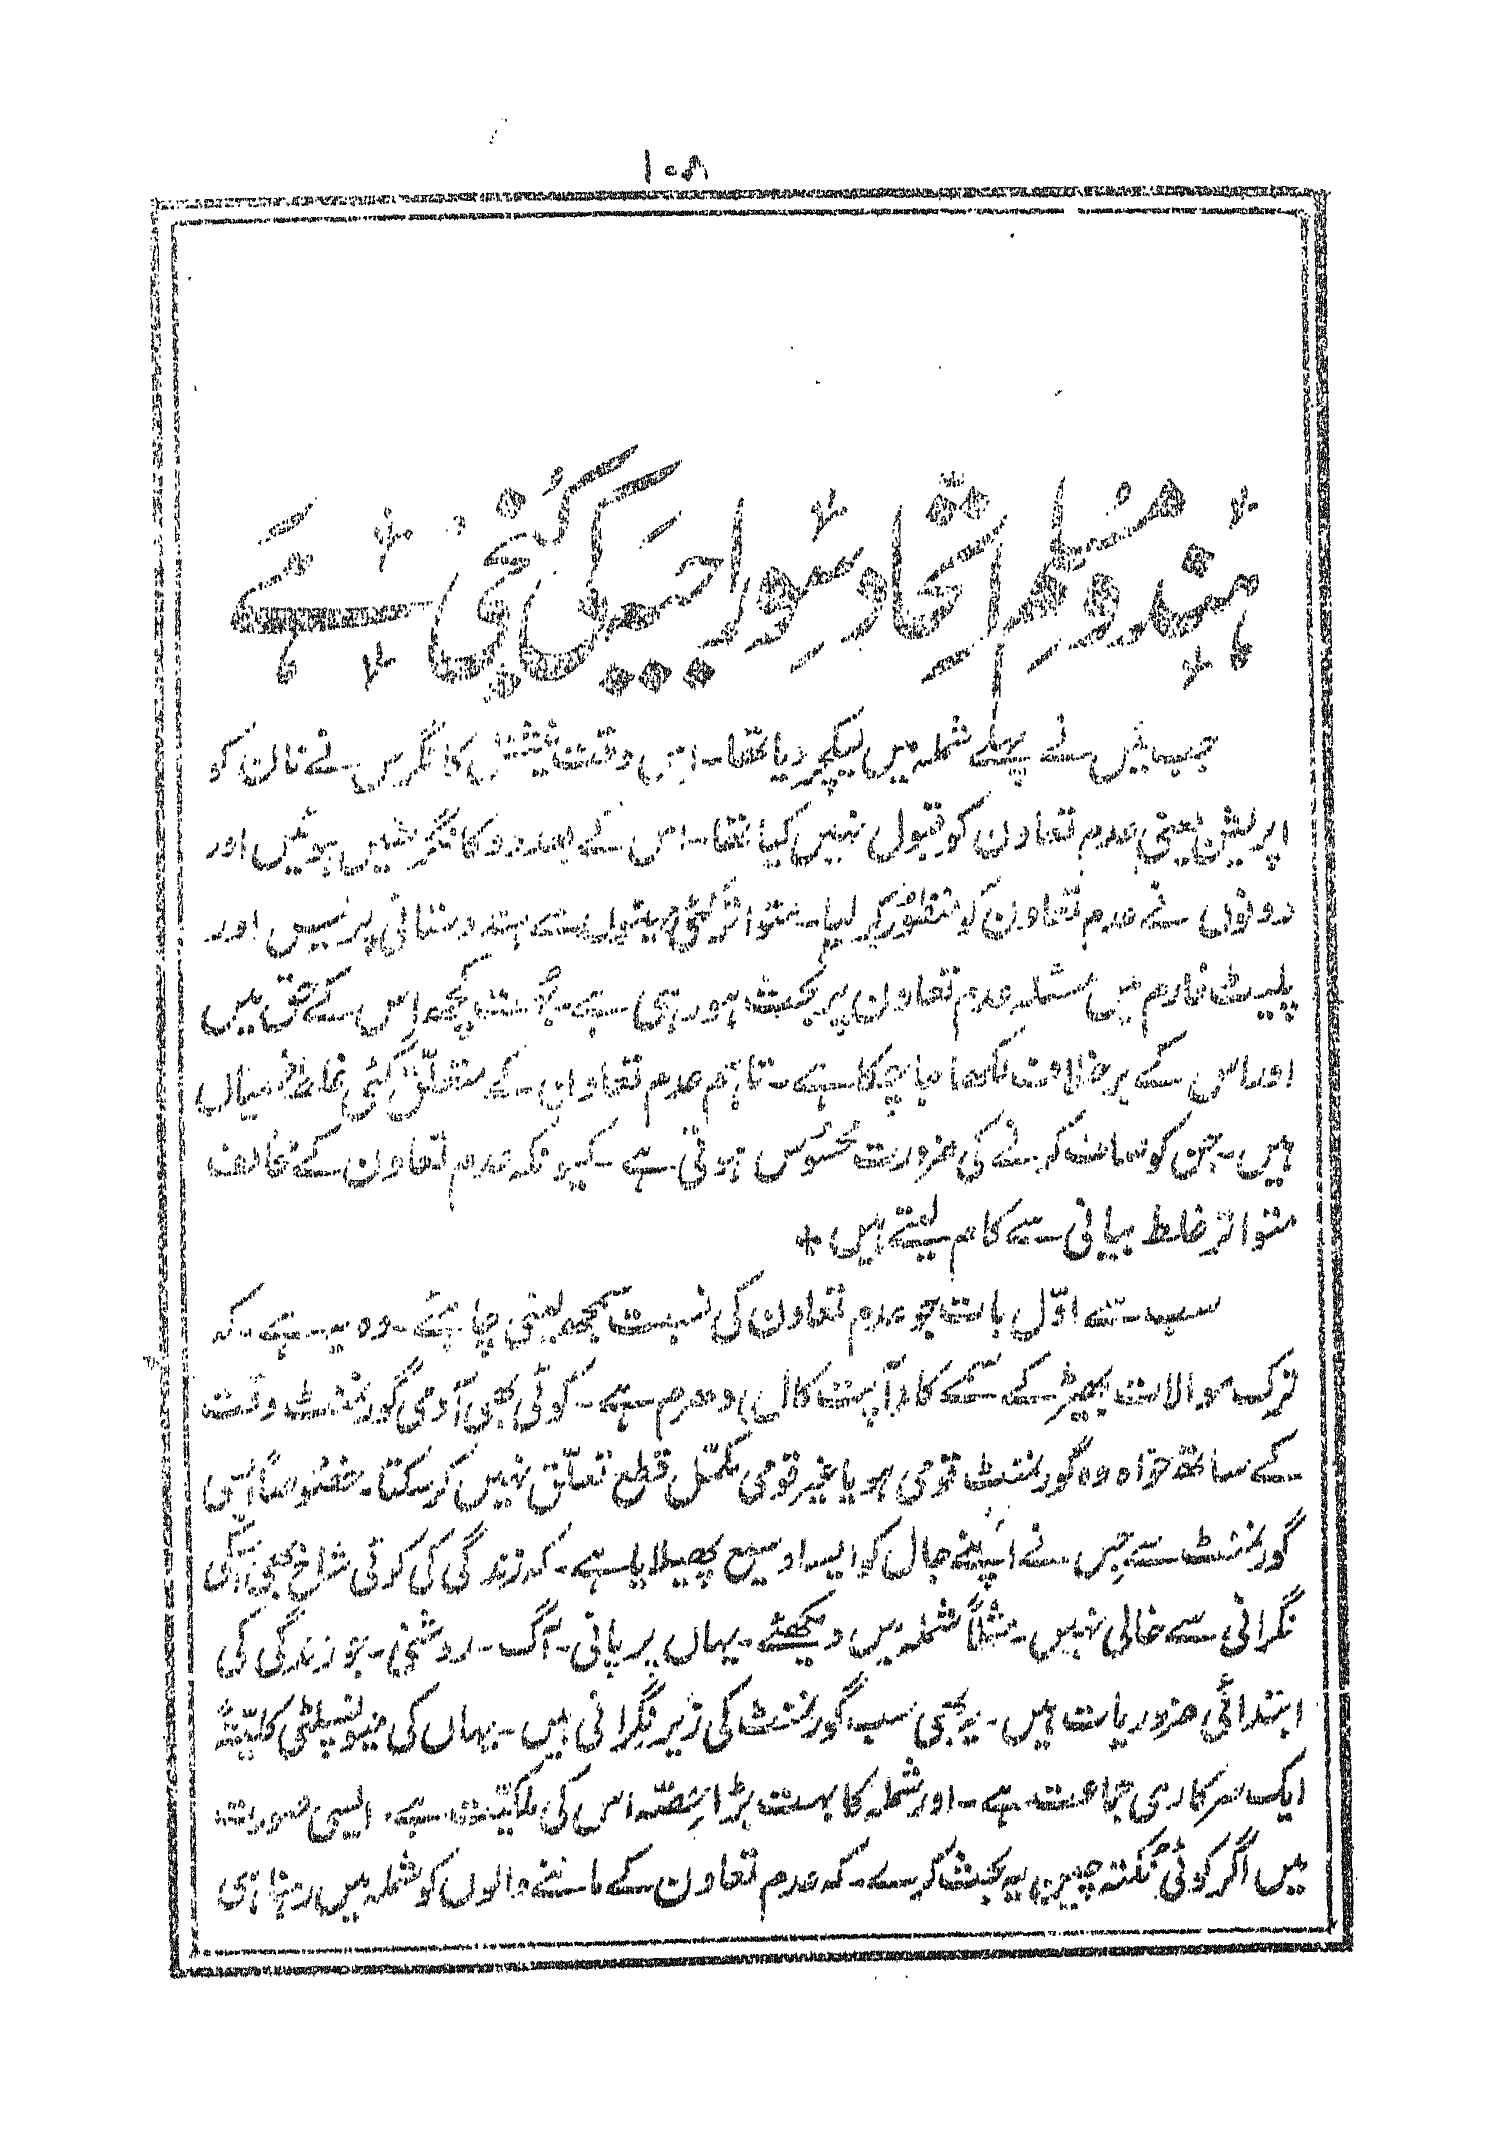 ۱۰۸
ہندو مسلم اتحاد سوراجیہ کی کنجی ہے
جب میں نے پہلے شملہ میں لیکچر دیا تھا۔ اس وقت نیشنل کانگرس نے نان کو
اپریشن یعنی عدم تعاون کو قبول نہیں کیا تھا۔ اس کے بعد دو کانگرسیں ہوئیں اور
دونوں نے عدم تعاون کو منظور کر لیا۔ متواتر کئی مہینوں سے ہندوستانی پریس اور
پلیٹ فارم میں مسئلہ عدم تعاون پر بحث ہو رہی ہے۔ بہت کچھ اس کے حق میں
اور اس کے برخلاف لکھا جا چکا ہے۔ تاہم عدم تعاون کے متعلق کئی غلط فہمیاں
ہیں۔ جن کو صاف کرنے کی ضرورت محسوس ہوتی ہے۔ کیونکہ عدم تعاون کے مخالف
متواتر غلط بیانی سے کام لیتے ہیں +
سب سے اول بات جو عدم تعاون کی نسبت سمجھ لینی چاہئے۔ وہ یہ ہے۔ کہ
ترک موالات بھیڑ کے سمے کا (آپت کال) دھرم ہے۔ کوئی بھی آدمی گورنمنٹ وقت
کے ساتھ خواہ وہ گورنمنٹ قومی ہو یا غیر قومی مکمل قطع تعلق نہیں کر سکتا۔ خصوصاً اس
گورنمنٹ سے جس نے اپنے جال کو ایسا وسیع پھیلایا ہے۔ کہ زندگی کی کوئی شاخ بھی اسکی
نگرانی سے خالی نہیں۔ مثلاً شملہ میں دیکھئے۔ یہاں پر پانی۔ آگ۔ روشنی۔ جو زندگی کی
ابتدائی ضروریات ہیں۔ یہ بھی سب گورنمنٹ کی زیر نگرانی ہیں۔ یہاں کی میونسپلٹی کلیتہً
ایک سرکاری جماعت ہے۔ اور شملہ کا بہت بڑا حصہ اس کی ملکیت ہے۔ ایسی صورت
میں اگر کوئی نکتہ چین یہ بحث کرے۔ کہ عدم تعاون کے ماننے والوں کو شملہ میں رہنا ہی